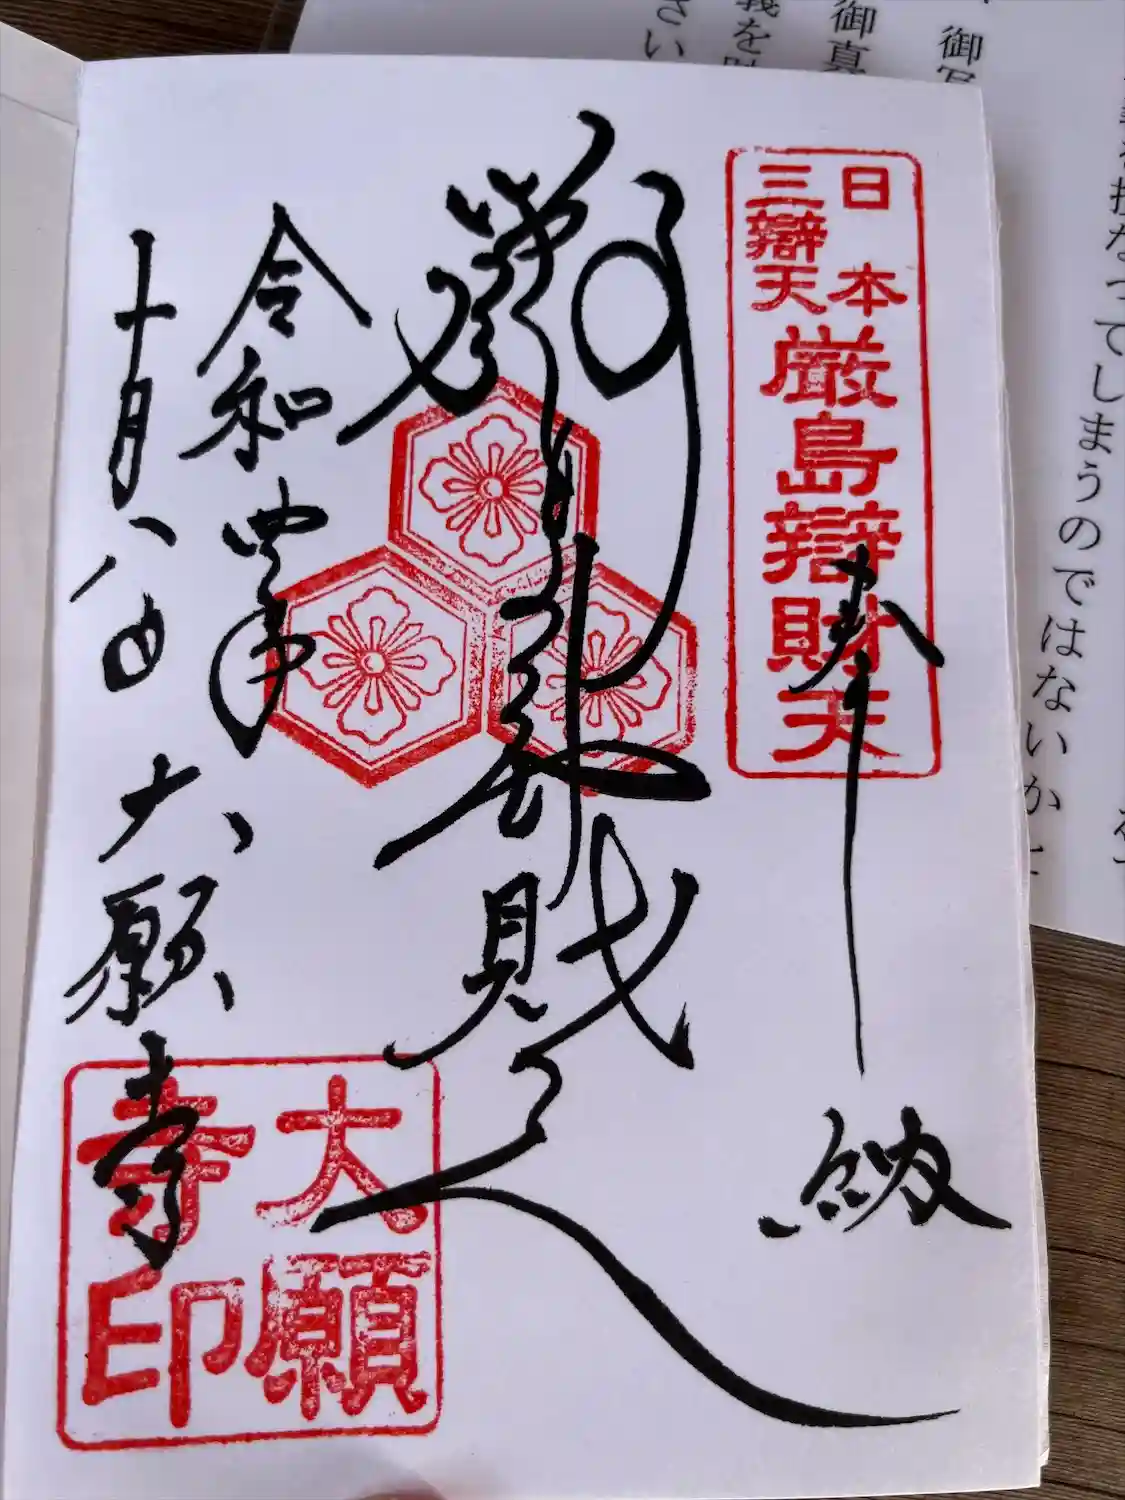 日本
三辯天
厳島辯財天
奉納
厳島辯財天
令和四年
十月八日
大願寺
大願
寺印
御写
御真
義を
さい
なってしまうのではないか